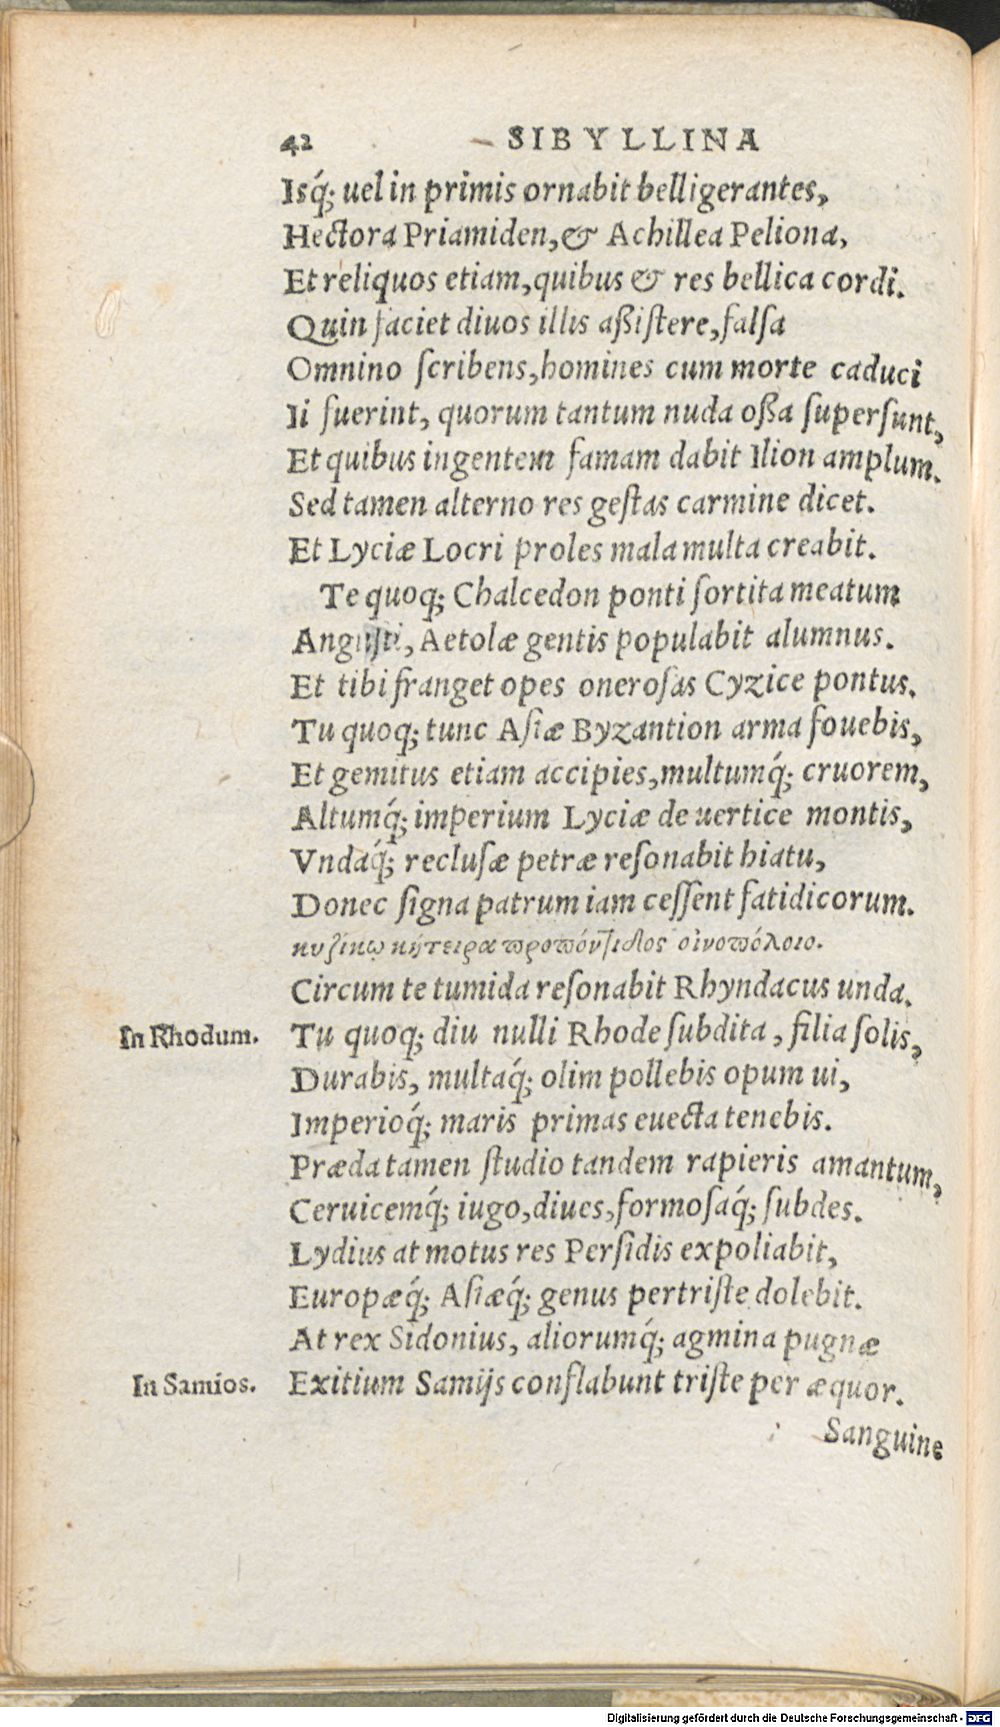 42 SIBYLLINA
Isq́; uel in primis ornabit belligerantes,
Hectora Priamiden, & Achillea Peliona,
Et reliquos etiam, quibus & res bellica cordi.
Quin faciet diuos illis aßiſtere, falſa
Omnino ſcribens, homines cum morte caduci
Ii fuerint, quorum tantum nuda oßa ſuperſunt,
Et quibus ingentem famam dabit Ilion amplum.
Sed tamen alterno res geſtas carmine dicet.
Et Lyciæ Locri proles mala multa creabit.
Te quoq; Chalcedon ponti ſortita meatum
Anguſti, Aetolæ gentis populabit alumnus.
Et tibi franget opes oneroſas Cyzice pontus.
Tu quoq; tunc Aſiæ Byzantion arma fouebis,
Et gemitus etiam accipies, multumq́; cruorem,
Altumq́; imperium Lyciæ de uertice montis,
Vndaq́; recluſæ petræ reſonabit hiatu,
Donec ſigna patrum iam ceſſent fatidicorum.
κυζίκῳ κήτειρα προπόντιδος οἰνοπόλοιο.
Circum te tumida reſonabit Rhyndacus unda.
In Rhodum. Tu quoq; diu nulli Rhode ſubdita, filia ſolis,
Durabis, multaq́; olim pollebis opum ui,
Imperioq́; maris primas euecta tenebis.
Præda tamen ſtudio tandem rapieris amantum,
Ceruicemq́; iugo, diues, formoſaq́; ſubdes.
Lydius at motus res Perſidis expoliabit,
Europæq́; Aſiæq́; genus pertriſte dolebit.
At rex Sidonius, aliorumq́; agmina pugnæ
In Samios. Exitium Samijs conflabunt triſte per æquor.
Sanguine
Digitalisierung gefördert durch die Deutsche Forschungsgemeinschaft - DFG